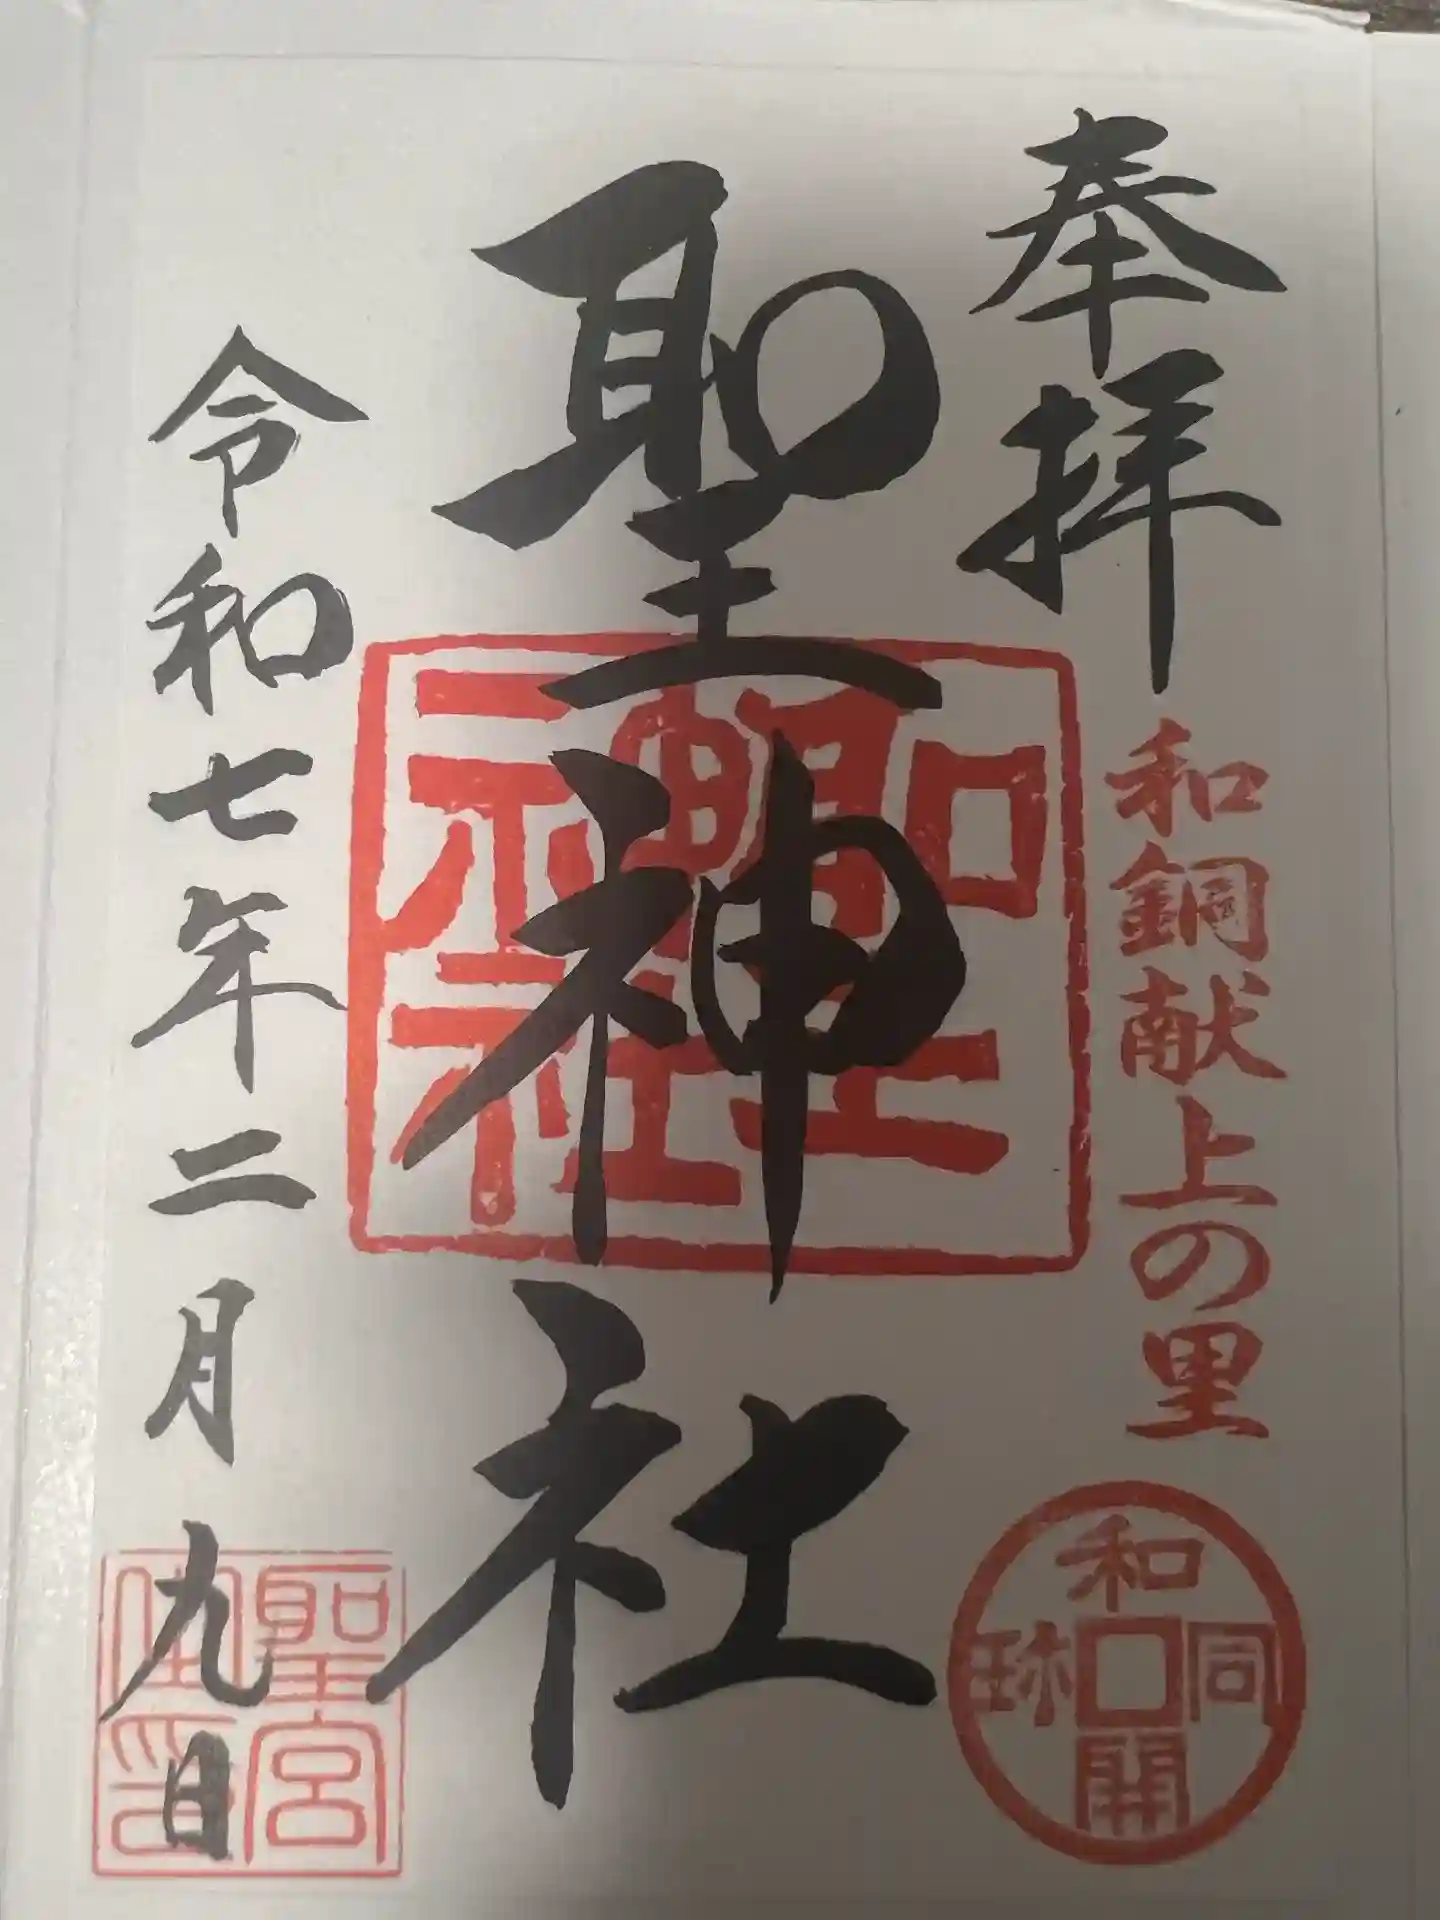 奉拝
和銅献上の里
和同開珎
聖神社
聖神社
令和七年二月九日
聖宮